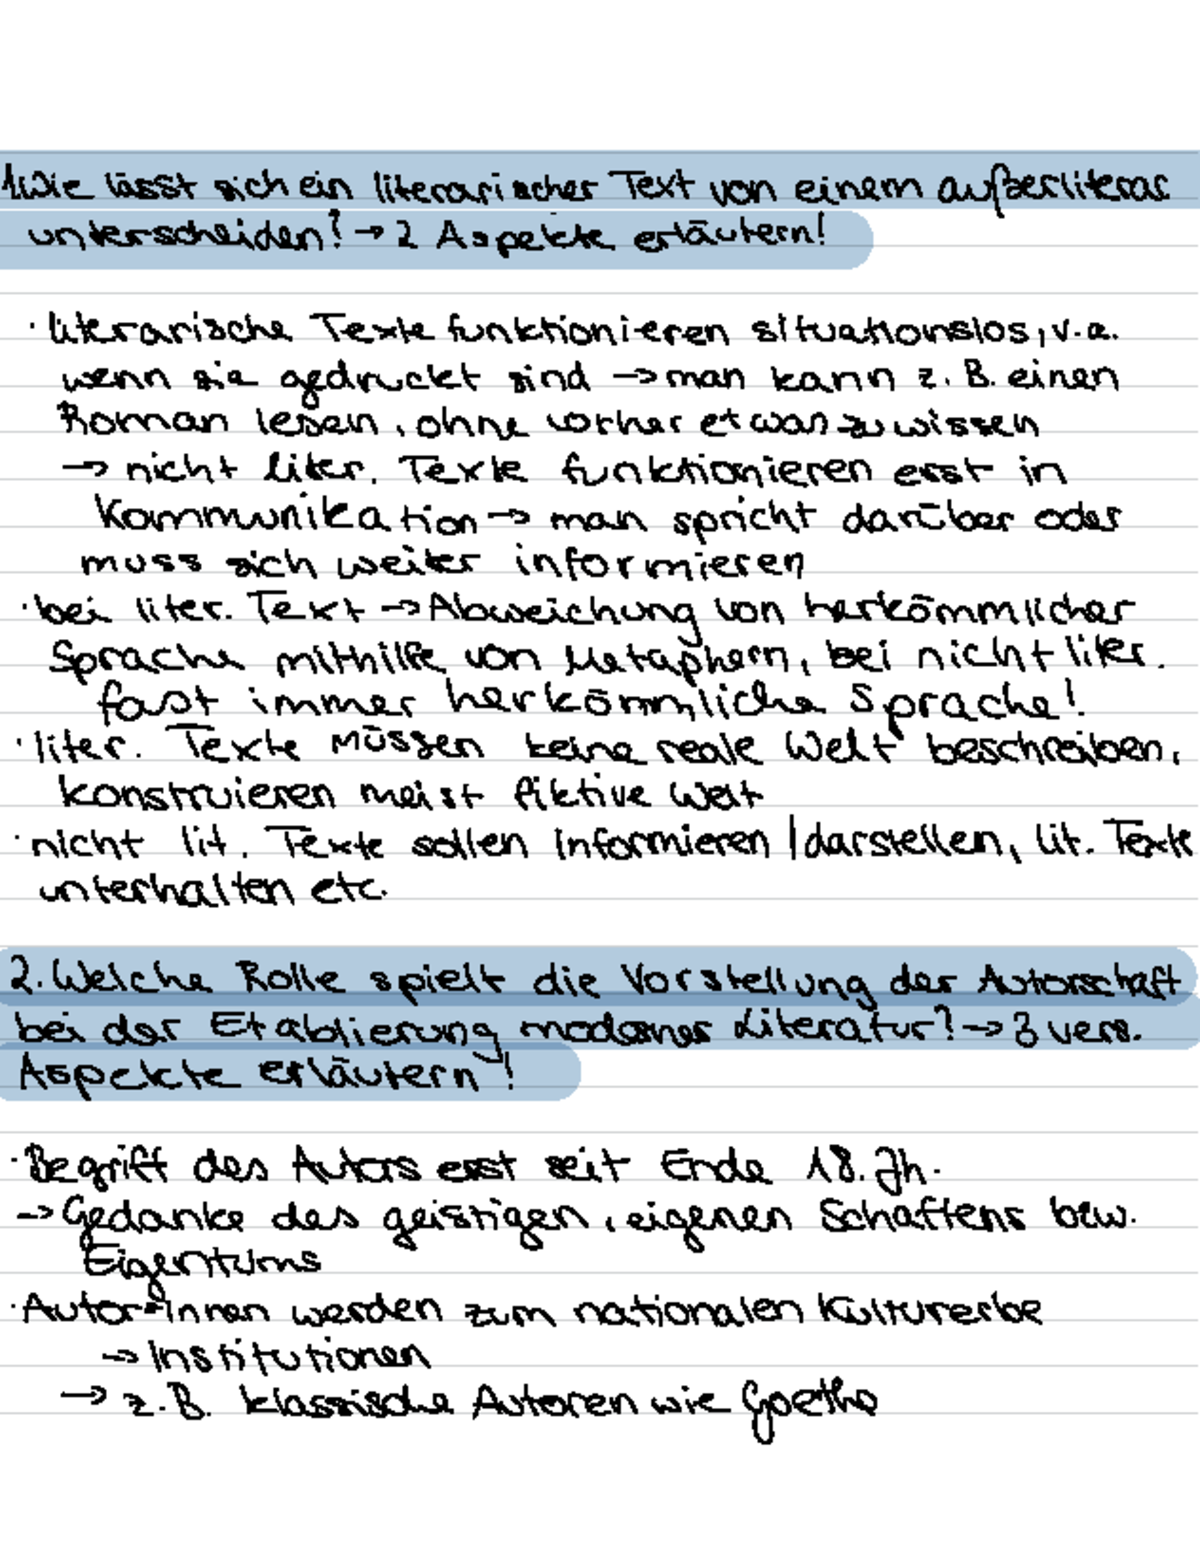 1. Wie lässt sich ein literarischer Text von einem außerliterar
unterscheiden? → 2 Aspekte erläutern!
· literarische Texte funktionieren situationslos, v.a.
wenn sie gedruckt sind → man kann z. B. einen
Roman lesen, ohne vorher etwas zu wissen
→ nicht liter. Texte funktionieren erst in
Kommunikation → man spricht darüber oder
muss sich weiter informieren
· bei liter. Text → Abweichung von herkömmlicher
Sprache mithilfe von Metaphern, bei nicht liter.
fast immer herkömmliche Sprache!
· liter. Texte müssen keine reale Welt beschreiben,
konstruieren meist fiktive Welt
· nicht lit. Texte sollen informieren / darstellen, lit. Texte
unterhalten etc.
2. Welche Rolle spielt die Vorstellung der Autorschaft
bei der Etablierung moderner Literatur? → 3 vers.
Aspekte erläutern!
· Begriff des Autors erst seit Ende 18. Jh.
→ Gedanke des geistigen, eigenen Schaffens bzw.
Eigentums
· Autor*innen werden zum nationalen Kulturerbe
→ Institutionen
→ z.B. klassische Autoren wie Goethe